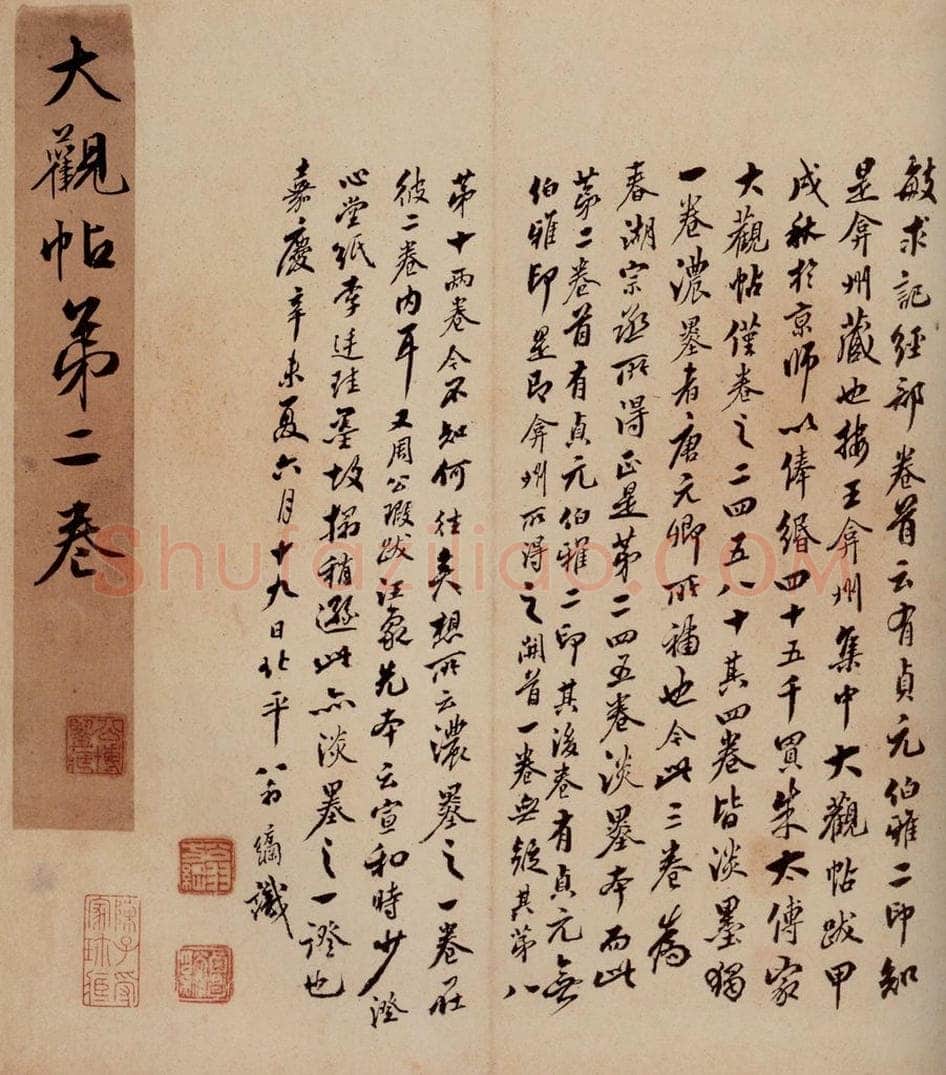 敏求記經部卷首云有貞元伯雅二印知
是弇州藏也按王弇州集中大觀帖跋甲
戌秋於京師以俸緡四十五千買朱太傅家
大觀帖僅卷之二四五八十其四卷皆淡墨獨
一卷濃墨者唐元卿所補也今此三卷爲
春湖宗丞所得正是第二四五卷淡墨本而此
第二卷首有貞元伯雅二印其後卷有貞元無
伯雅印是即弇州所得之開首一卷無疑其第八
第十兩卷今不知何往矣想所云濃墨之一卷在
彼二卷内耳又周公瑕跋汪象先本云宣和時少澄
心堂紙李廷珪墨故搨稍遜此亦淡墨之一證也
嘉慶辛未夏六月十九日北平
識
大觀帖第二卷
陳子受
家珍庋
Shufaziliao.COM